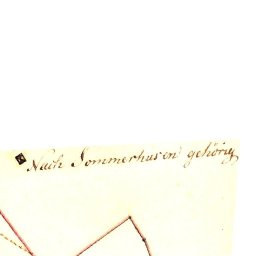 Nach Sommerhusen gehörig